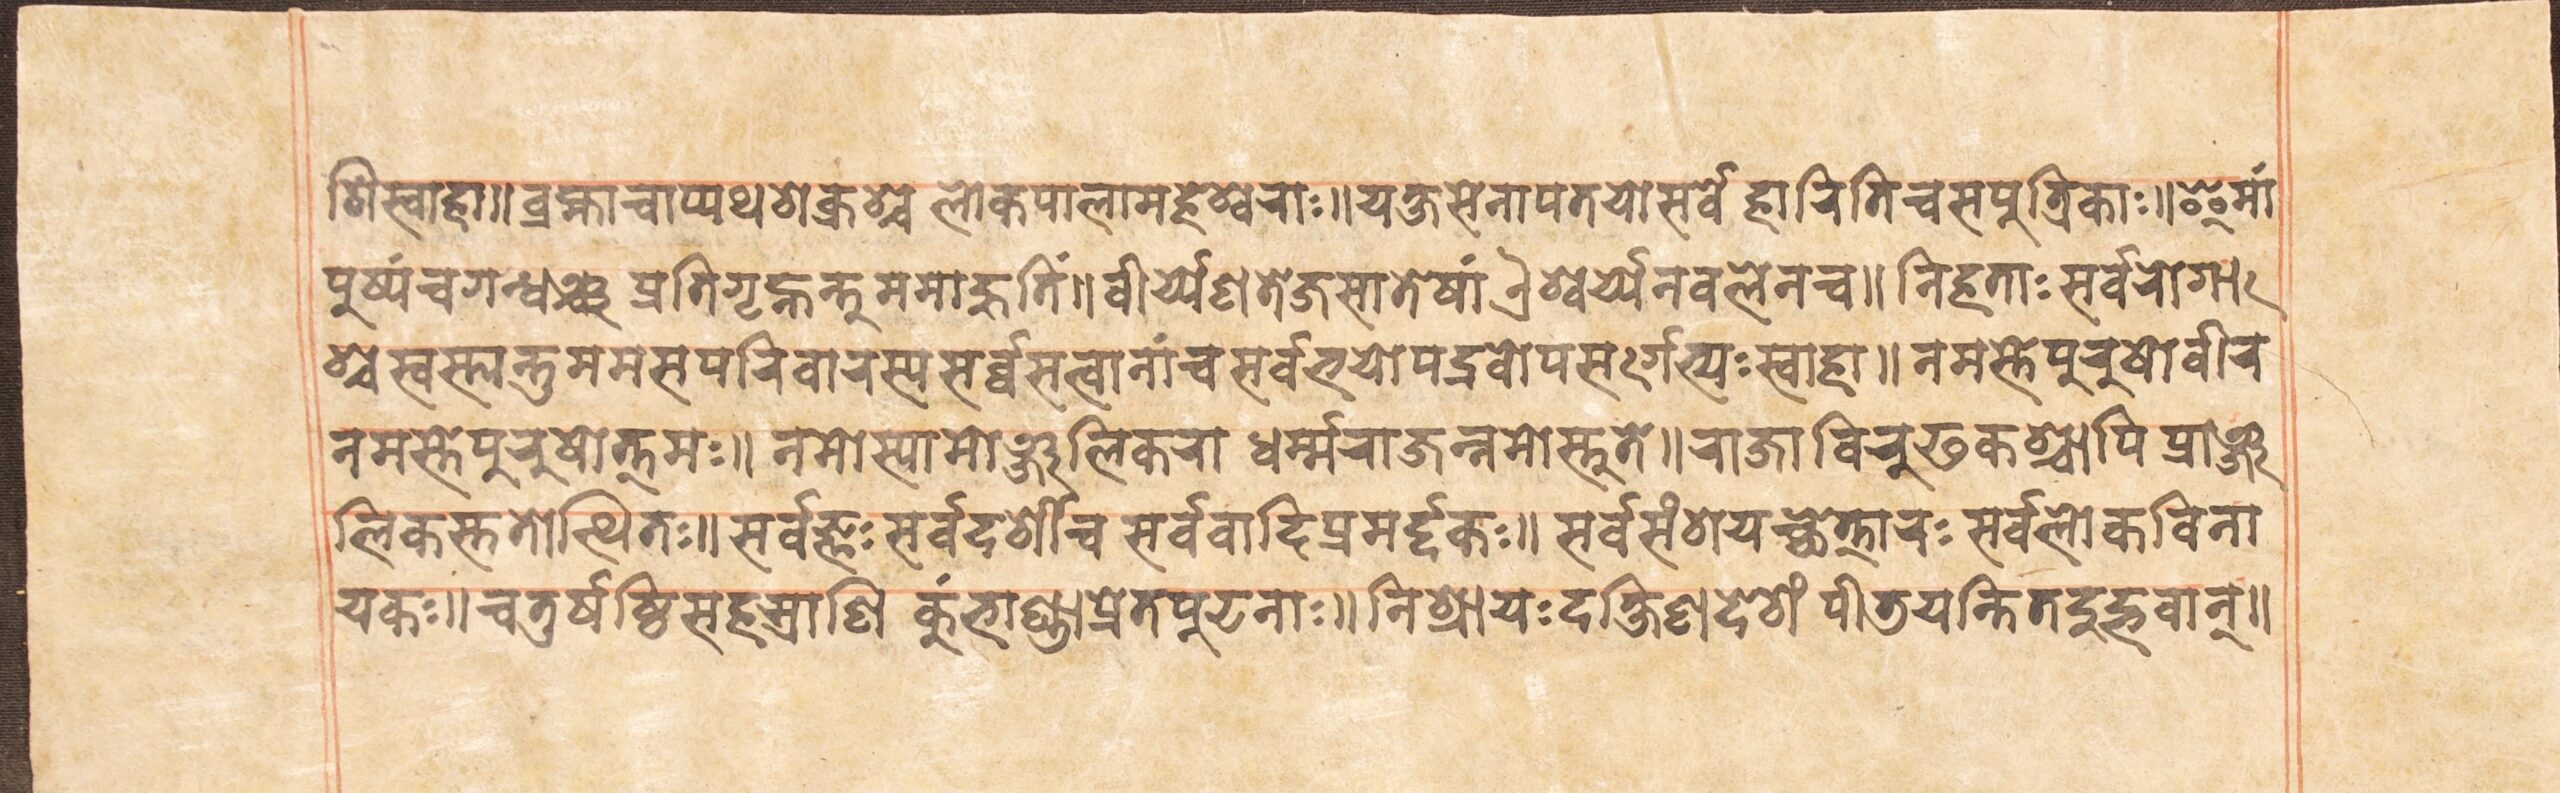 शिस्वाहा॥ब्रह्माचाप्यथशक्रश्च लोकपालामहेश्वराः॥यक्षसेनापतयोसर्वे हारितिचसपुत्रिकाः॥इमां
पुष्पंचगन्धञ्च प्रतिगृह्नन्तुममाहुतिं॥वीर्य्येणतेजसातेषां ऐश्वर्य्येनवलेनच॥निहताःसर्वरोगा
श्चस्वस्त्यान्तुममसपरिवारस्यसर्व्वसत्वानांचसर्वभयोपद्रवोपसर्गेभ्यःस्वाहा॥नमस्तेपुरुषोवीर
नमस्तेपुरुषोत्तमः॥नमोस्यामोञ्जलिकरा धर्म्मराजन्नमोस्तुते॥राजाविरुढकश्चापिप्राञ्ज
लिकस्ततोत्थितः॥सर्वज्ञःसर्वदर्शीच सर्ववादिप्रमर्द्दकः॥सर्वसंशयच्छेत्तारः सर्वलोकविना
यकः॥चतुर्षष्ठिसहस्राणि कुंभाण्डाप्रेतपुटनाः॥निश्रायःदक्षिणदेशं पीडयन्तितदुद्भवान्॥